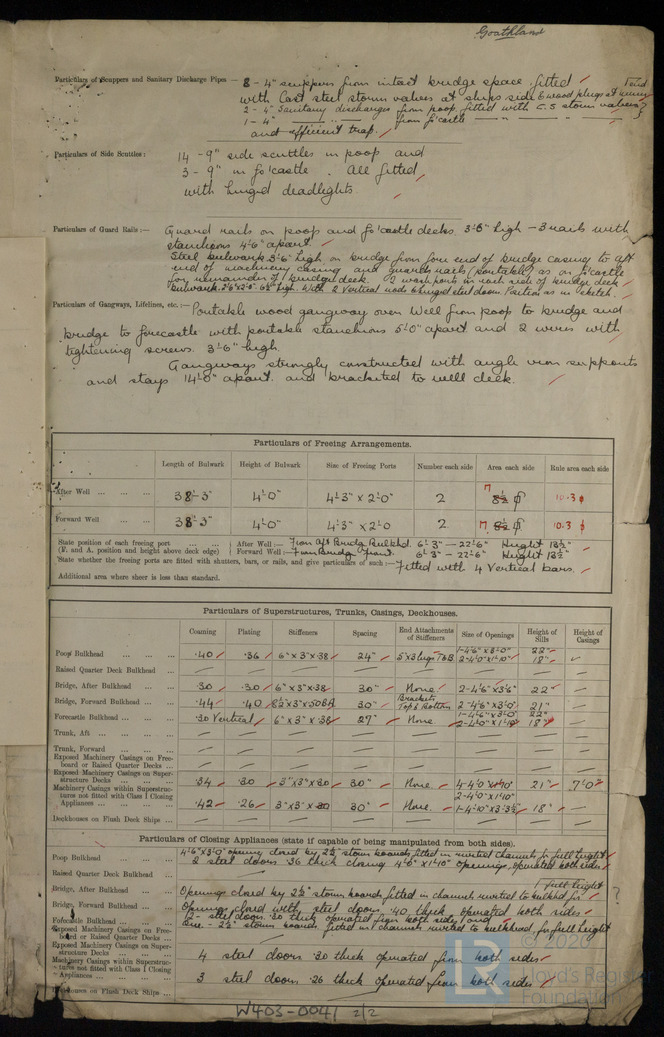 Goathland
Particulars of Scuppers and Sanitary Discharge Pipes — 8 - 4" scuppers from intact bridge space fitted
with Cast steel storm valves at ships side & wood plugs at
2 - 4" Sanitary discharges from poop, fitted with C.S storm valves
1 - 4" " — " — from fo'castle — " — " — "
and efficient trap.
Particulars of Side Scuttles :
14 - 9" side scuttles in poop and
3 - 9" in fo'castle . All fitted
with hinged deadlights.
Particulars of Guard Rails :— Guard rails on poop and fo'castle decks. 3'-6" high - 3 rails with
stanchions 4'-6" apart
Steel bulwark 3'-6" high on bridge from fore end of bridge casing to aft
end of machinery casing and guards rails (portable) as on fo'castle
for remainder of bridge deck. 2 wash ports in each side of bridge deck
bulwark. high. With 2 Vertical rods & hinged steel doors. Position as in sketch.
Particulars of Gangways, Lifelines, etc. :— Portable wood gangway over Well from poop to bridge and
bridge to forecastle with portable stanchions 5'-0" apart and 2 wires with
tightening screws. 3'-6" high
Gangways strongly constructed with angle iron supports
and stays 14'-0" apart. and bracketed to well deck.
Particulars of Freeing Arrangements.
Length of Bulwark Height of Bulwark Size of Freeing Ports Number each side Area each side Rule area each side
After Well ... ... ... 38'-3" 4'-0" 4'-3" x 2'-0" 2 17 8½ 10.3
Forward Well ... ... 38'-3" 4'-0" 4'-3" x 2'-0 2 17 8½ 10.3
State position of each freeing port ... ... ... After Well :— From Aft Bridge Bulkhd. 6'-3" - 22'-6" Height 13½"
(F. and A. position and height above deck edge) Forward Well :— From Bridge Front 6'-3" - 22'-6" Height 13½"
State whether the freeing ports are fitted with shutters, bars, or rails, and give particulars of such :— Fitted with 4 Vertical bars.
Additional area where sheer is less than standard.
Particulars of Superstructures, Trunks, Casings, Deckhouses.
Coaming Plating Stiffeners Spacing End Attachments of Stiffeners Size of Openings Height of Sills Height of Casings
Poop Bulkhead ... ... ... .40 .36 6" x 3" x .38 24" 5"x3 lugs T&B 1-4'6"x3'-0" 22"
2-4'0"x1'10" 18"
Raised Quarter Deck Bulkhead ... — — — — — — — —
Bridge, After Bulkhead ... ... .30 .30 6" x 3" x .38 30" None 2-4'6"x3'6" 22" —
Bridge, Forward Bulkhead ... ... .44 .40 8½ x 3" x 50 BA 30" Brackets Top & Bottom 2-4'6"x3'0" 21"
Forecastle Bulkhead ... ... ... .30 Vertical 6" x 3" x .38 27" None 1-4'6"x3'0" 22"
2-4'0"x1'10" 18"
Trunk, Aft ... ... ... ... — — — — — — — —
Trunk, Forward ... ... ... — — — — — — — —
Exposed Machinery Casings on Freeboard or Raised Quarter Decks ... — — — — — — — —
Exposed Machinery Casings on Superstructure Decks ... ... ... .34 .30 3" x 3" x .30 30" None. 4-4'0"x1'10" 21" 7'0"
Machinery Casings within Superstructures not fitted with Class I Closing Appliances ... ... ... .42 .26 3" x 3" x .30 30" None. 2-4'0"x1'10"
1-4'10"x3'3½ 18" —
Deckhouses on Flush Deck Ships ... — — — — — — — —
Particulars of Closing Appliances (state if capable of being manipulated from both sides).
Poop Bulkhead ... ... ... 4'6"x3'0" opening closed by 2½" storm boards, fitted in riveted channels for full height
2 steel doors .36 thick closing 4'0"x1'10" openings, operated both sides
Raised Quarter Deck Bulkhead ... —
Bridge, After Bulkhead ... ... Openings closed by 2½" storm boards fitted in channels riveted to bulkhd for full height
Bridge, Forward Bulkhead ... ... Openings closed with steel doors .40 thick, operated both sides
Forecastle Bulkhead ... ... ... 2 - steel doors .30 thick operated from both sides, and
one - 2½" storm boards, fitted in channels riveted to bulkhead, for full height
Exposed Machinery Casings on Freeboard or Raised Quarter Decks ...
Exposed Machinery Casings on Superstructure Decks ... ... ... 4 steel doors .30 thick operated from both sides
Machinery Casings within Superstructures not fitted with Class I Closing Appliances ... ... ... 3 steel doors .26 thick operated from both sides
Deckhouses on Flush Deck Ships ...
© 2020
LR
Lloyd's Register
Foundation
W403-0041 2/2